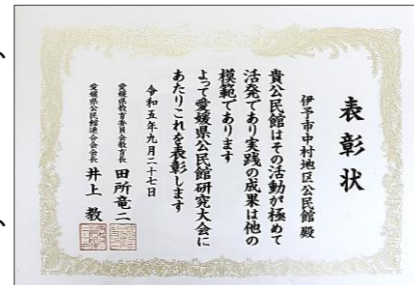 表彰状
伊予市中村地区公民館 殿
貴公民館はその活動が極めて
活発であり実践の成果は他の
模範であります
よって愛媛県公民館研究大会に
あたりこれを表彰します
令和五年九月二十七日
愛媛県教育委員会教育長 田所竜二
愛媛県公民館連合会会長 井上 毅